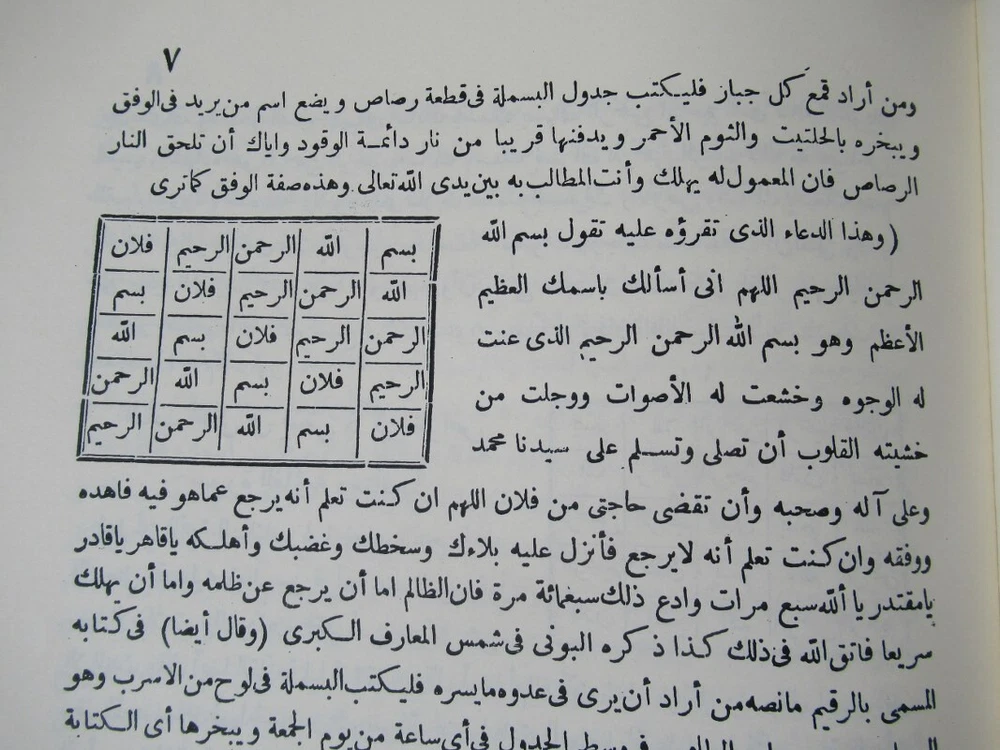 ٧
ومن أراد قمع كل جبار فليكتب جدول البسملة فى قطعة رصاص ويضع اسم من يريد فى الوفق
ويبخره بالحلتيت والثوم الأحمر ويدفنها قريبا من نار دائمة الوقود واياك أن تلحق النار
الرصاص فان المعمول له يهلك وأنت المطالب به بين يدى الله تعالى وهذه صفة الوفق كماترى
(وهذا الدعاء الذى تقرؤه عليه تقول بسم الله
الرحمن الرحيم اللهم انى أسألك باسمك العظيم
الأعظم وهو بسم الله الرحمن الرحيم الذى عنت
له الوجوه وخشعت له الأصوات ووجلت من
خشيته القلوب أن تصلى وتسلم على سيدنا محمد
بسم الله الرحمن الرحيم فلان
الله الرحمن الرحيم فلان بسم
الرحمن الرحيم فلان بسم الله
الرحيم فلان بسم الله الرحمن
فلان بسم الله الرحمن الرحيم
وعلى آله وصحبه وأن تقضى حاجتى من فلان اللهم ان كنت تعلم أنه يرجع عماهو فيه فاهده
ووفقه وان كنت تعلم أنه لايرجع فأنزل عليه بلاءك وسخطك وغضبك وأهلكه ياقاهر ياقادر
يامقتدر يا ألله سبع مرات وادع ذلك سبعمائة مرة فان الظالم اما أن يرجع عن ظلمه واما أن يهلك
سريعا فاتق الله فى ذلك كذا ذكره البونى فى شمس المعارف الكبرى (وقال أيضا) فى كتابه
المسمى بالرقيم مانصه من أراد أن يرى فى عدوه مايسره فليكتب البسملة فى لوح من الاسرب وهو
فى وسط الجدول فى أى ساعة من يوم الجمعة ويبخرها أى الكتابة